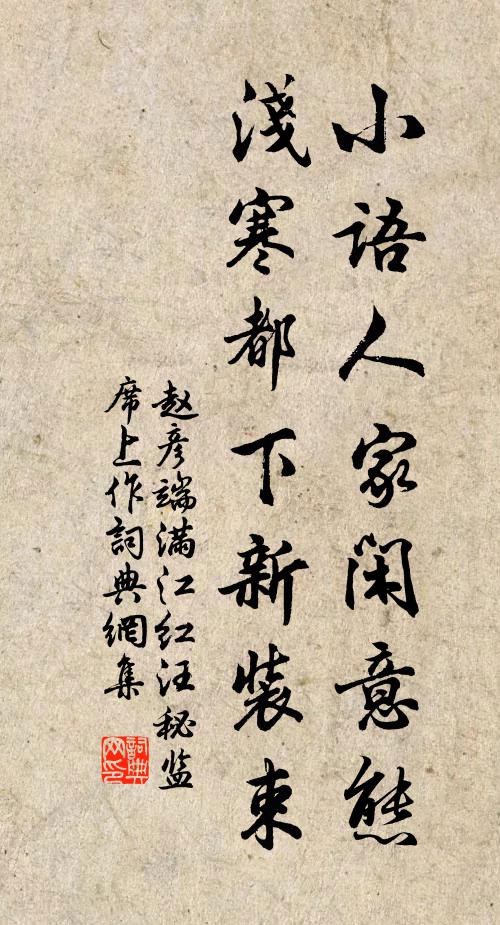 小語人家閑意態
淺寒都下新裝束
赵彦端满江红汪秘监
席上作詞典網集
詞典